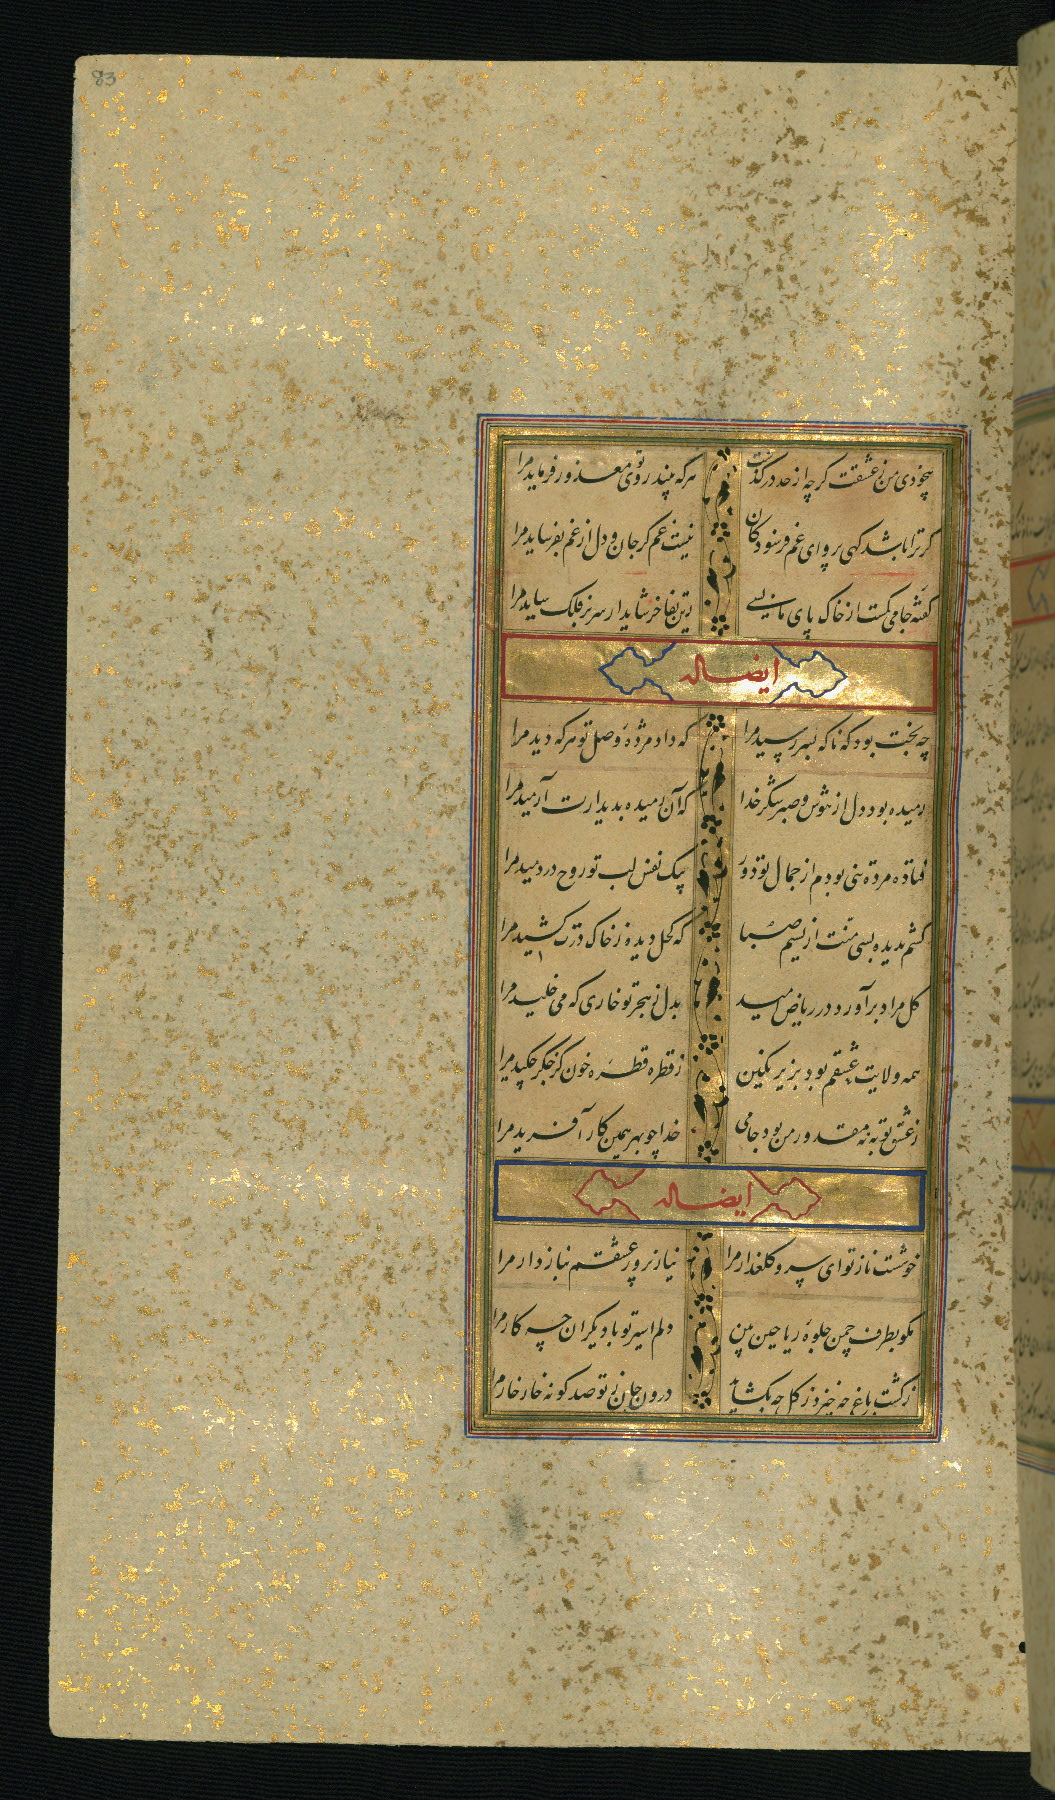 83
بیخودی من ز عشقت گرچه از حد درگذشت هرکه بیند روی تو معذور فرماید مرا
گر ترا باشد گهی پروای غم فرسودگان نیست غم گر جان و دل از غم بفرساید مرا
گفته جامی کمست از خاک پای ما بسی زین تفاخر شاید ار سر بر فلک ساید مرا
ایضا له
چه بخت بود که ناگه بسر رسید مرا که داد مژده وصل تو هرکه دید مرا
رمیده بود دل از هوش و صبر شکر خدا که آن رمیده بدیدارت آرمید مرا
فتاده مرده تنی بودم از جمال تو دور بیک نفس لب تو روح در دمید مرا
کشم بدیده بسی منت از نسیم صبا که کحل دیده ز خاک درت کشید مرا
گل مراد برآورد در ریاض امید بدل ز هجر تو خاری که می خلید مرا
همه ولایت عشقم بود بزیر نگین ز قطره قطره خون کز جگر چکید مرا
ز عشق توبه نه مقدور من بود جامی خدا چو بهر همین کار آفرید مرا
ایضا له
خوشست ناز تو ای سرو گلعذار مرا نیازپرور عشقتم بناز دار مرا
مگو بطرف چمن جلوه ریاحین بین دلم اسیر تو با دیگران چه کار مرا
ز گشت باغ چه خیزد ز گل چه بگشاید درون جان ز تو صد گونه خار خار مرا